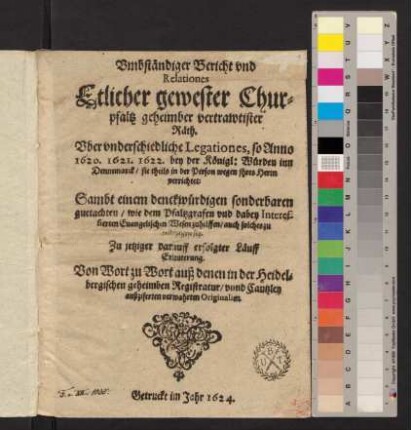 Vmbständiger Bericht vnd
Relationes
Etlicher gewester Chur-
pfaltz geheimber vertrawtister
Räth.
Vber vnderschiedliche Legationes, so Anno
1620. 1621. 1622. bey der Königl: Würden inn
Dennemarck / sie theils in der Person wegen jhres Herrn
verrichtet.
Sambt einem denckwürdigen sonderbaren
guetachten / wie dem Pfaltzgrafen vnd dabey Interes-
sierten Evangelischen Wesen zuhülffen / auch solches zu
Zu jetziger darauff erfolgter Läuff
Erleuterung.
Von Wort zu Wort auß denen in der Heidel-
bergischen geheimben Registratur / vnnd Cantzley
verwahrten Originalien.
Getruckt im Jahr 1624.